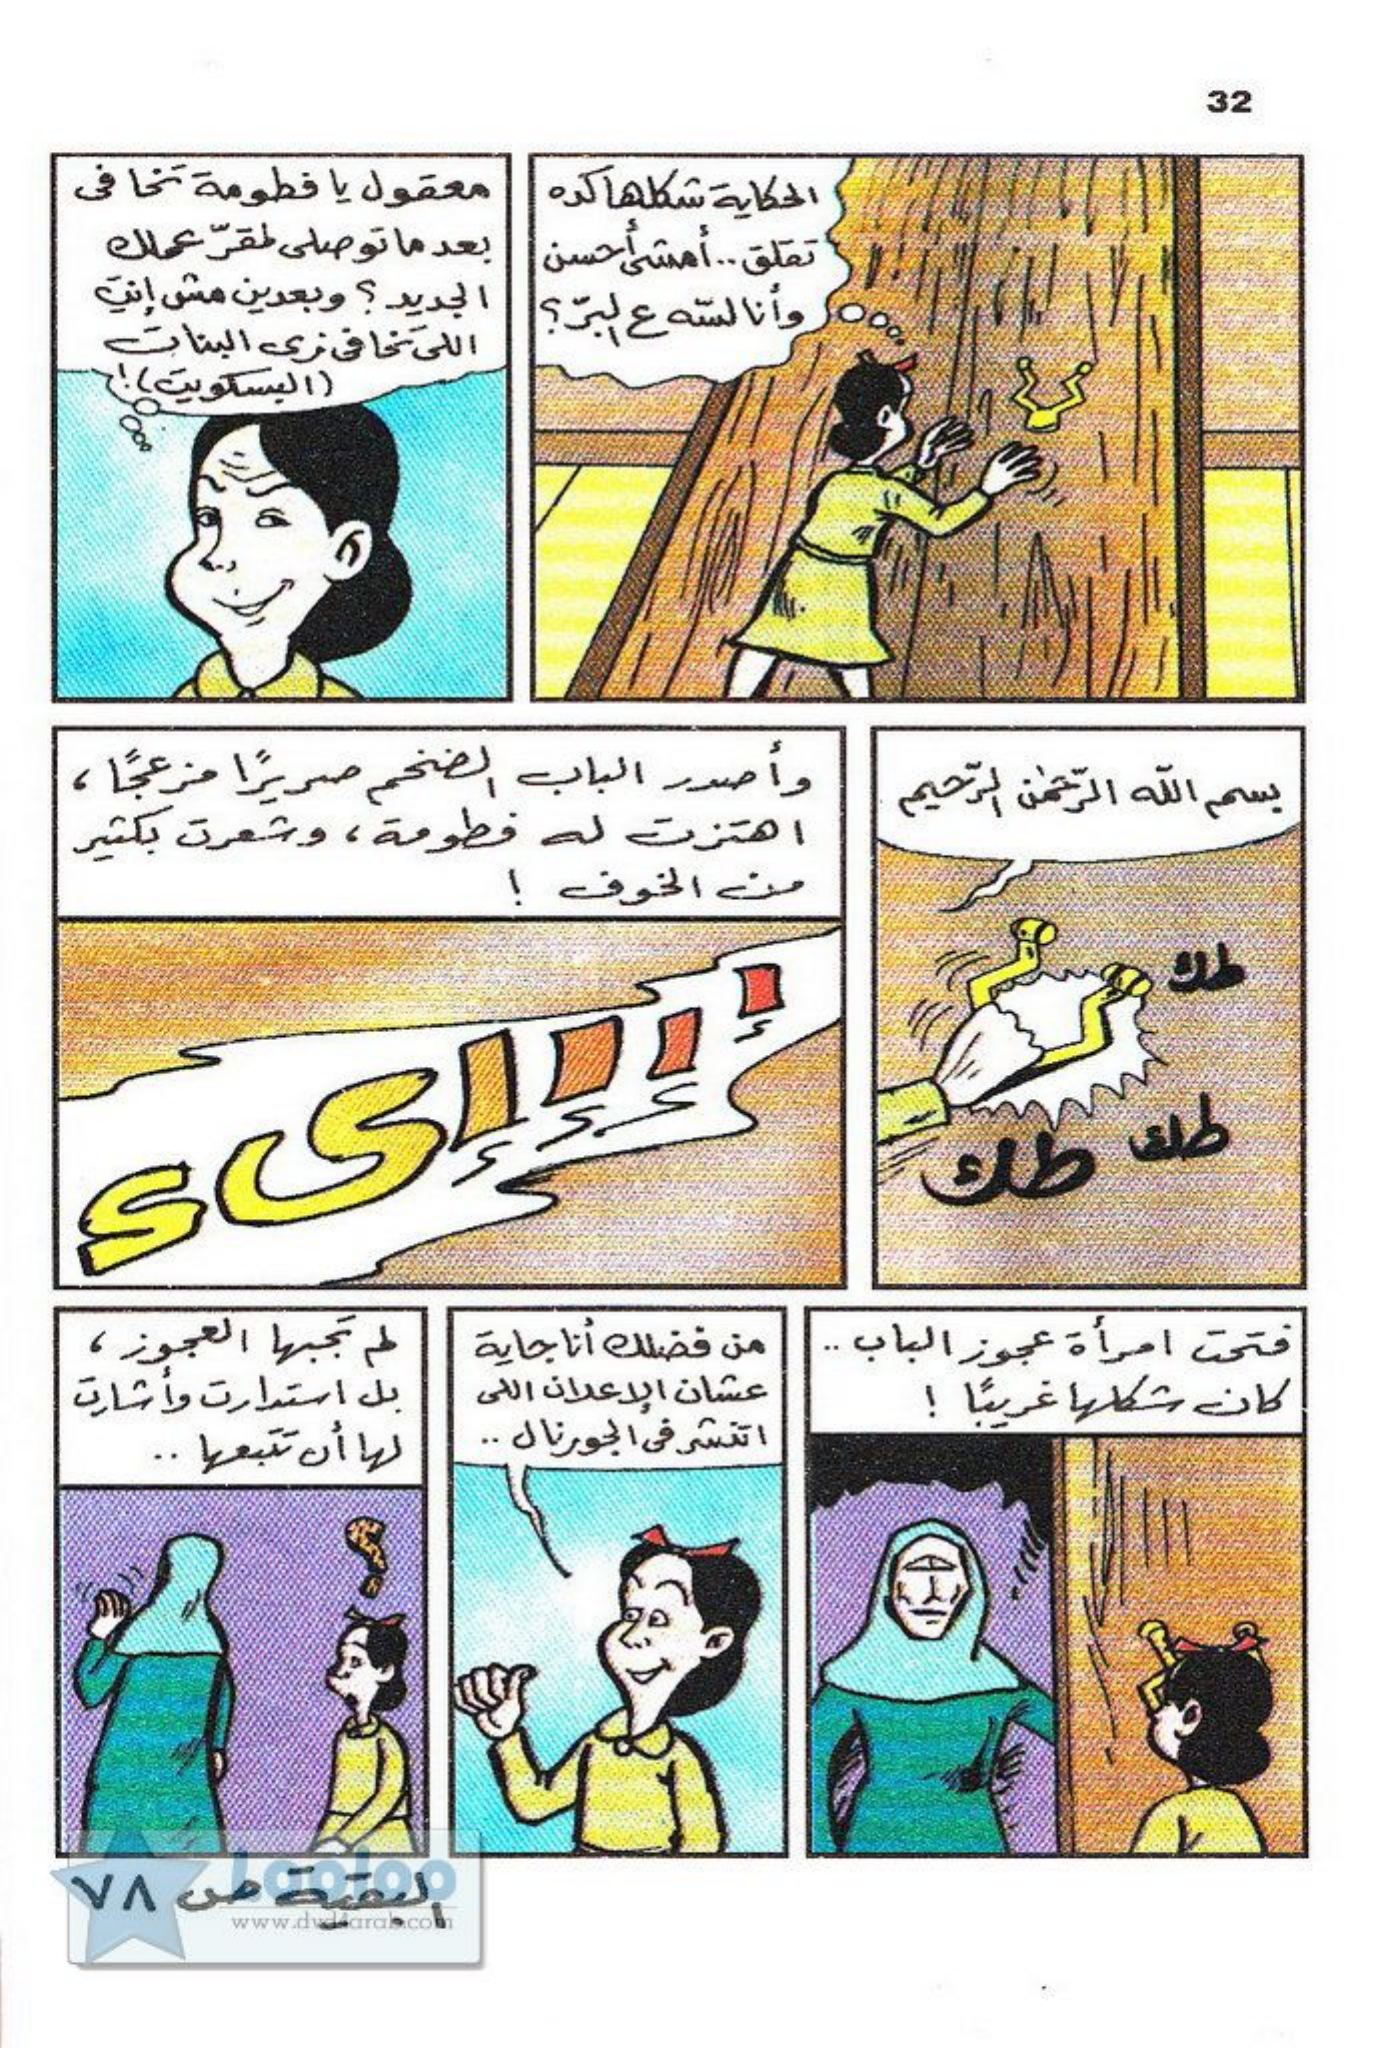 32
الحكاية شكلها كده
تقلق.. أمشى أحسن
وأنا لسّه ع البرّ؟
معقول يا فطومة تخافى
بعد ما توصلى لمقرّ عملك
الجديد؟ وبعدين مش إنتِ
اللى تخافى زى البنات
(البسكويت)!
بسم الله الرّحمٰن الرّحيم
طك
طك
طك
وأصدر الباب الضخم صريرًا مزعجًا،
اهتزت له فطومة، وشعرت بكثير
من الخوف !
إإإإىء
فتحت امرأة عجوز الباب..
كان شكلها غريبًا !
من فضلك أنا جاية
عشان الإعلان اللى
اتنشر فى الجورنال..
لم تجبها العجوز،
بل استدارت وأشارت
لها أن تتبعها..
؟
البقية ص ٧٨
Laoloo
www.dvd4arab.com